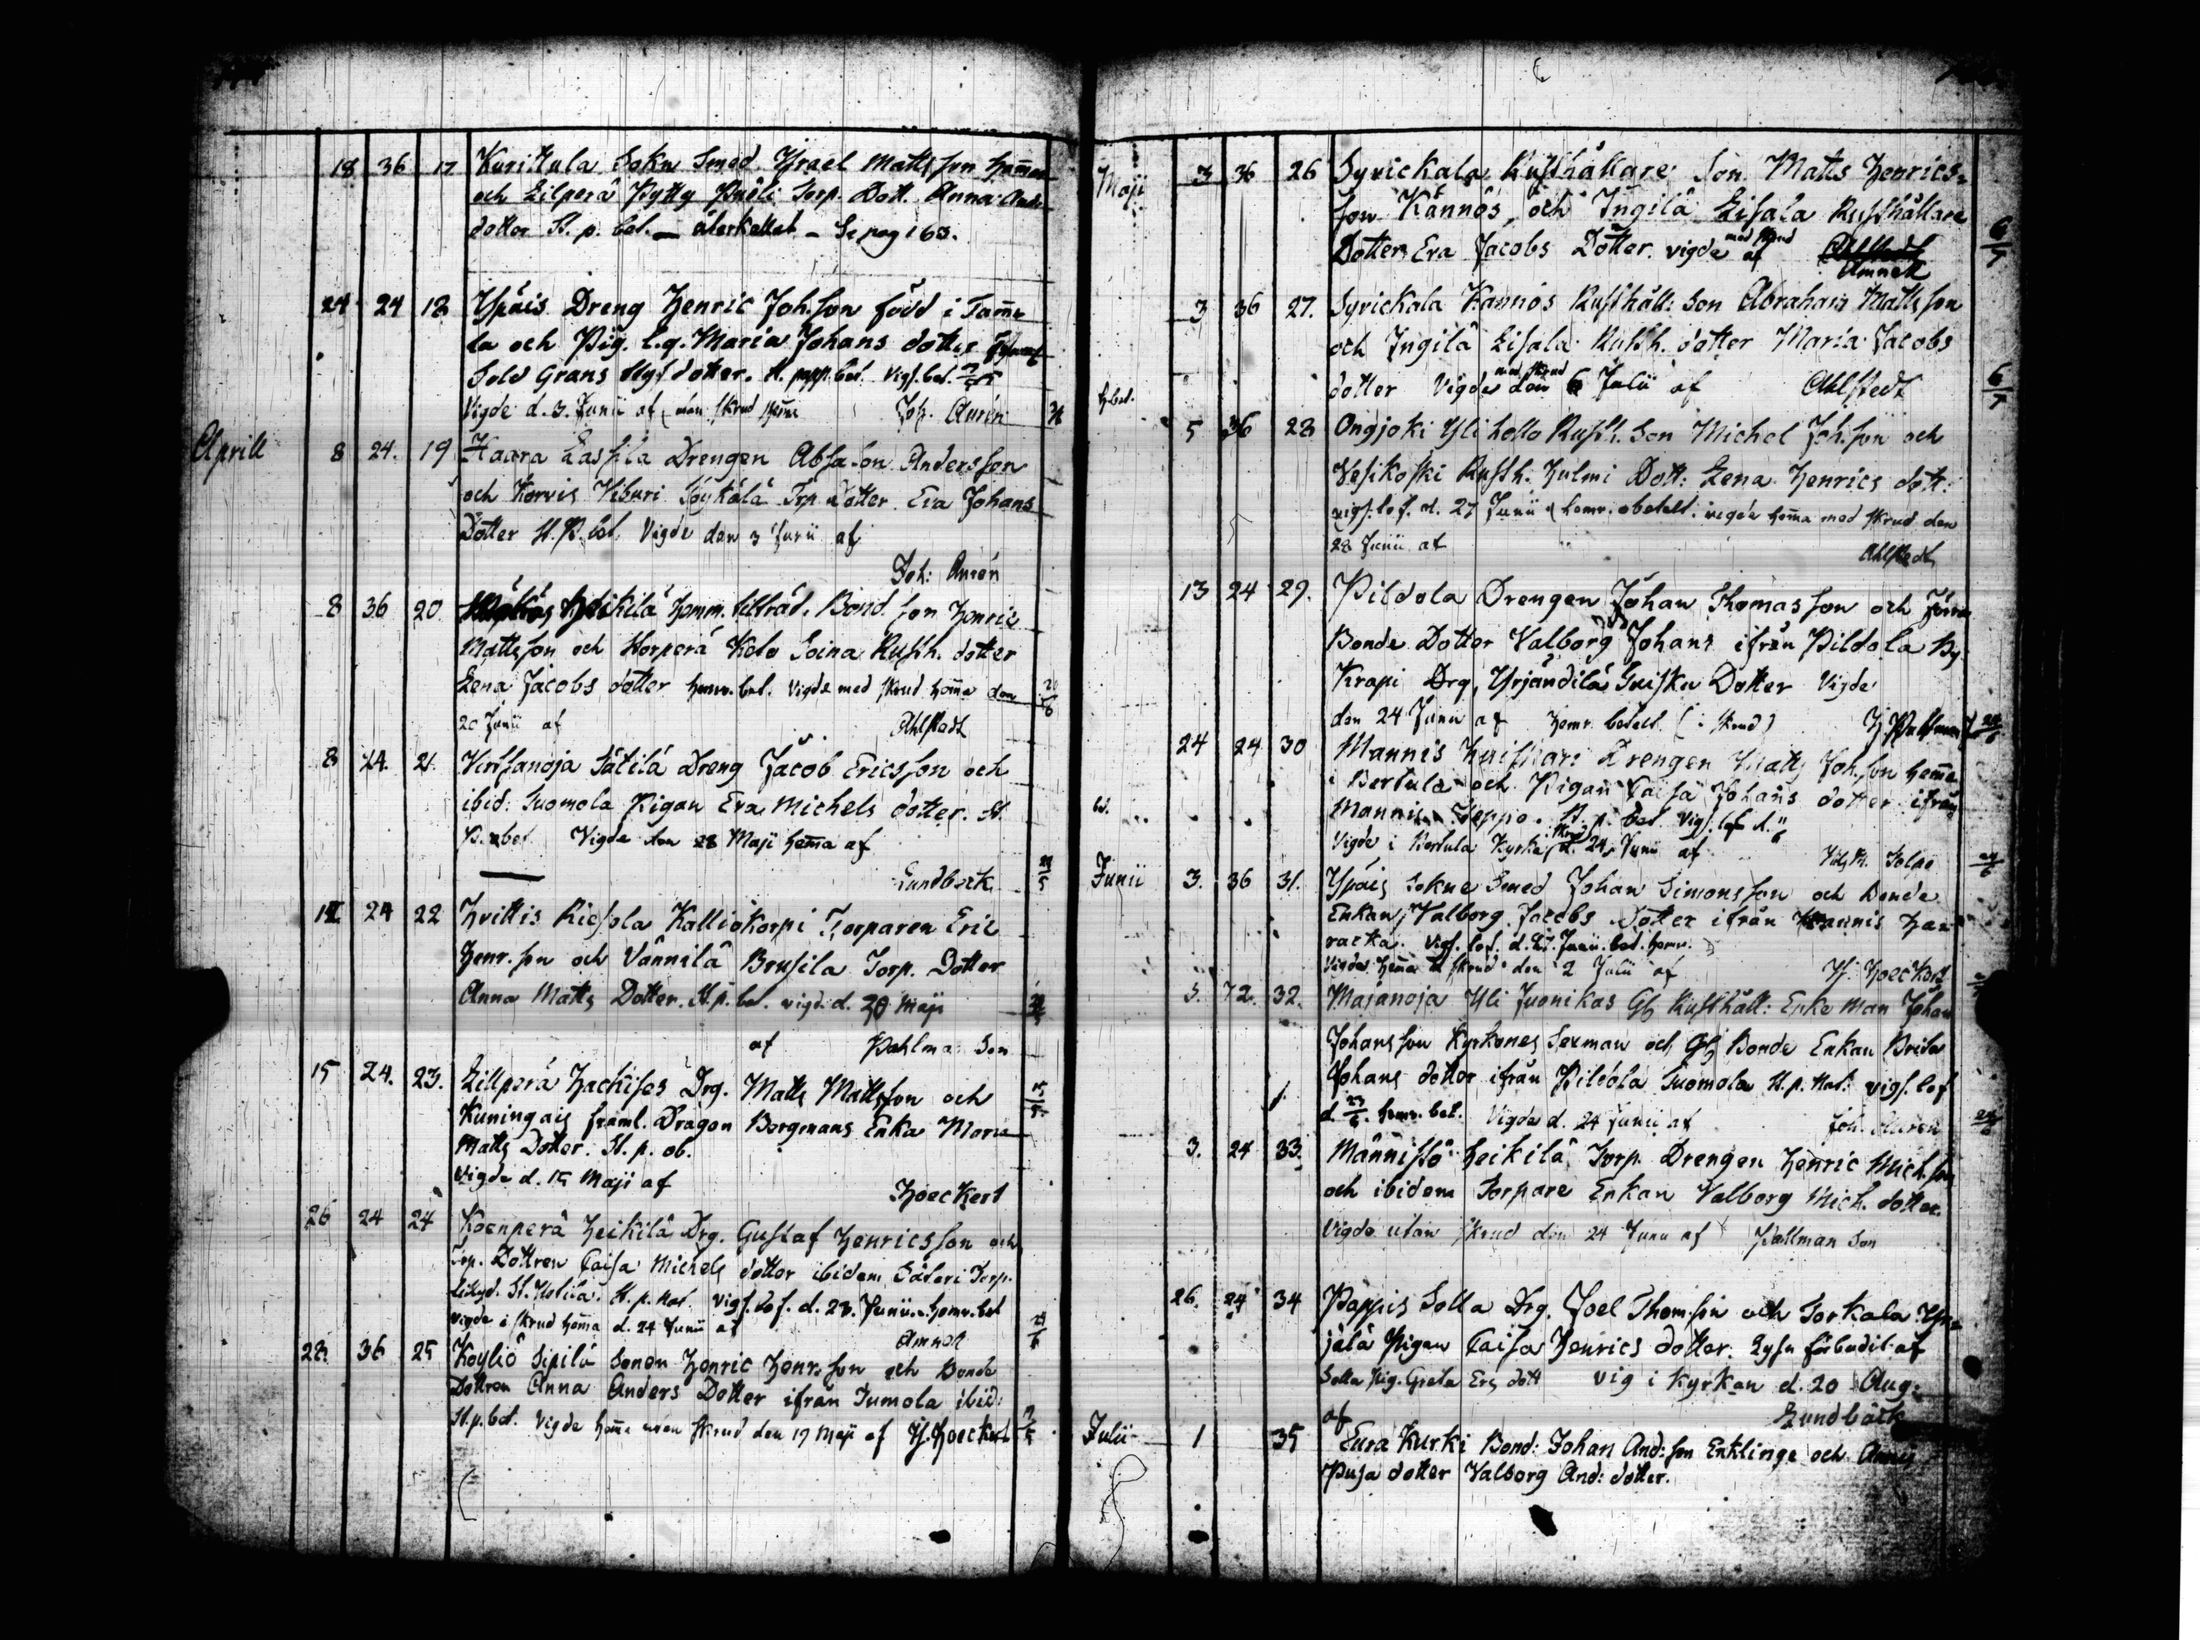 18 36 17 Kurittula Sokn Smed Isräel Mattsson
och Lilperä Pytty Torp. Dott. Anna
dotter St. p. bet. — återkallat — Se pag 163.
24 24 18 Ypäis Dreng Henric Johsson född i
la och Pig. l.q. Maria Johans dotter
Sold Grans Styfdotter. St. p. bet. Vigs. bet.
Vigde d. 3. Junii af utan skrud Joh. Aurén
Aprill 8 24. 19 Haara Laspila Drengen Absalon Andersson
och Korvis Viburi Torp dotter Eva Johans
Dotter St. P. bet. Vigde den 3 Junii af
Joh: Aurén
8 36 20 Heikilä Hemm. tillträd. Bond son Henric
Mattsson och Korperä Kelo Soina Rusth. dotter
Lena Jacobs dotter Hemv. bet. Vigde med skrud hema den
20 Junii af Ahlstedt
8 24. 21. Virtsanoja Sätilä Dreng Jacob Ericsson och
ibid: Suomola Pigan Eva Michels dotter. St.
P. obet. Vigde den 28 Maji hema af
Lundbäck
24 22 Hvittis Riesola Kalliokorpi Torparen Eric
Henr.son och Vännilä Brusila Torp. Dotter
Anna Matts Dotter. St. p. bet. vigd. d. 30 Maji
af Pahlman Son
15 24. 23. Lillperä Hachises Drg. Matts Mattsson och
Kuningais framl. Dragon Bergmans Enka Maria
Matts Dotter. St. p. ob.
Vigde d. 15 Maji af Hoeckert
26 24 24 Koenperä Heikilä Drg. Gustaf Henricsson och
Torp. Dottren Caisa Michels dotter ibidem Säteri Torp.
St. p. bet. vigs. lof. d. 23. Junii. hemv. bet
vigde i skrud hema d. 24 Junii af Amnell
28. 36 25 Köyliö Sipilä Sonen Henric Henr.son och Bonde
Dottren Anna Anders Dotter ifrån Tumola ibid:
St. p. bet. Vigde hema utan skrud den 17 Maji af H. Hoeckert
Maji 3 36 26 Syrickala Rusthållare Son Matts Henrics=
son Kännös, och Ingilä Eisala Rusthållare
Dotter Eva Jacobs Dotter. vigde med skrud af Amnell
6/7
3 36 27. Syrickala Kännös Rusthåll: Son Abraham Mattsson
och Ingilä Eisala Rusth. dotter Maria Jacobs
dotter Vigde med skrud den 6 Julii af Ahlstedt
6/7
5 36 28 Ongjoki Yli hollo Rusth. Son Michel Joh.son och
Vesikoski Rusth. Hulmi Dott: Lena Henrics dott:
vigs. lof. d. 27 Junii hemv. obetalt. vigde hema med skrud den
28 Junii af Ahlstedt
13 24 29. Pildola Drengen Johan Thomasson och
Bonde Dotter Valborg Johans ifrån Pildola By
Krapi Drg, Yrjändilä Dotter Vigde
den 24 Junii af hemv. betalt (i skrud)
24 24 30 Mannis Drengen Matts Joh.son
i Bertula och Pigan Caisa Johans dotter ifrån
Mannis Seppe. St. p. bet. Vigs. lof d.
Vigde i Kyrka, 24 Junii af
Junii 3. 36 31. Ypäis Sokne Smed Johan Simonsson och Bonde
Enkan, Valborg Jacobs Dotter ifrån Mannis
racka. vigs. lof. d. Junii. bet. hemv.
Vigde hema skrud den 2 Julii af H. Hoeckert
3. 72. 32. Majanoja Yli Juonikas Rusthåll: Enke Man Johan
Johansson Kyrkones Sexman och Bonde Enkan Brita
Johans dotter ifrån Pildola Suomola St. p. vigs. lof
d. 23/6. hemv. bet. Vigde d. 24 Junii af Joh. Aurén
24/6
3. 24 33. Männistö Heikilä Torp. Drengen Henric Mich.son
och ibidem Torpare Enkan Valborg Mich. dotter.
Vigde utan skrud den 24 Junii af Pahlman Son
26. 24 34 Pappis Solla Drg. Joel Thomson och Sorkala
jälä Pigan Caisa Henrics dotter. Lysn förbudit af
Solla Pig. Greta Ers dott vig i kyrkan d. 20 Aug:
af Lundbäck
Julii 1 35 Eura Kurki Bond: Johan And:son Enklinge och
Pusa dotter Valborg And: dotter.